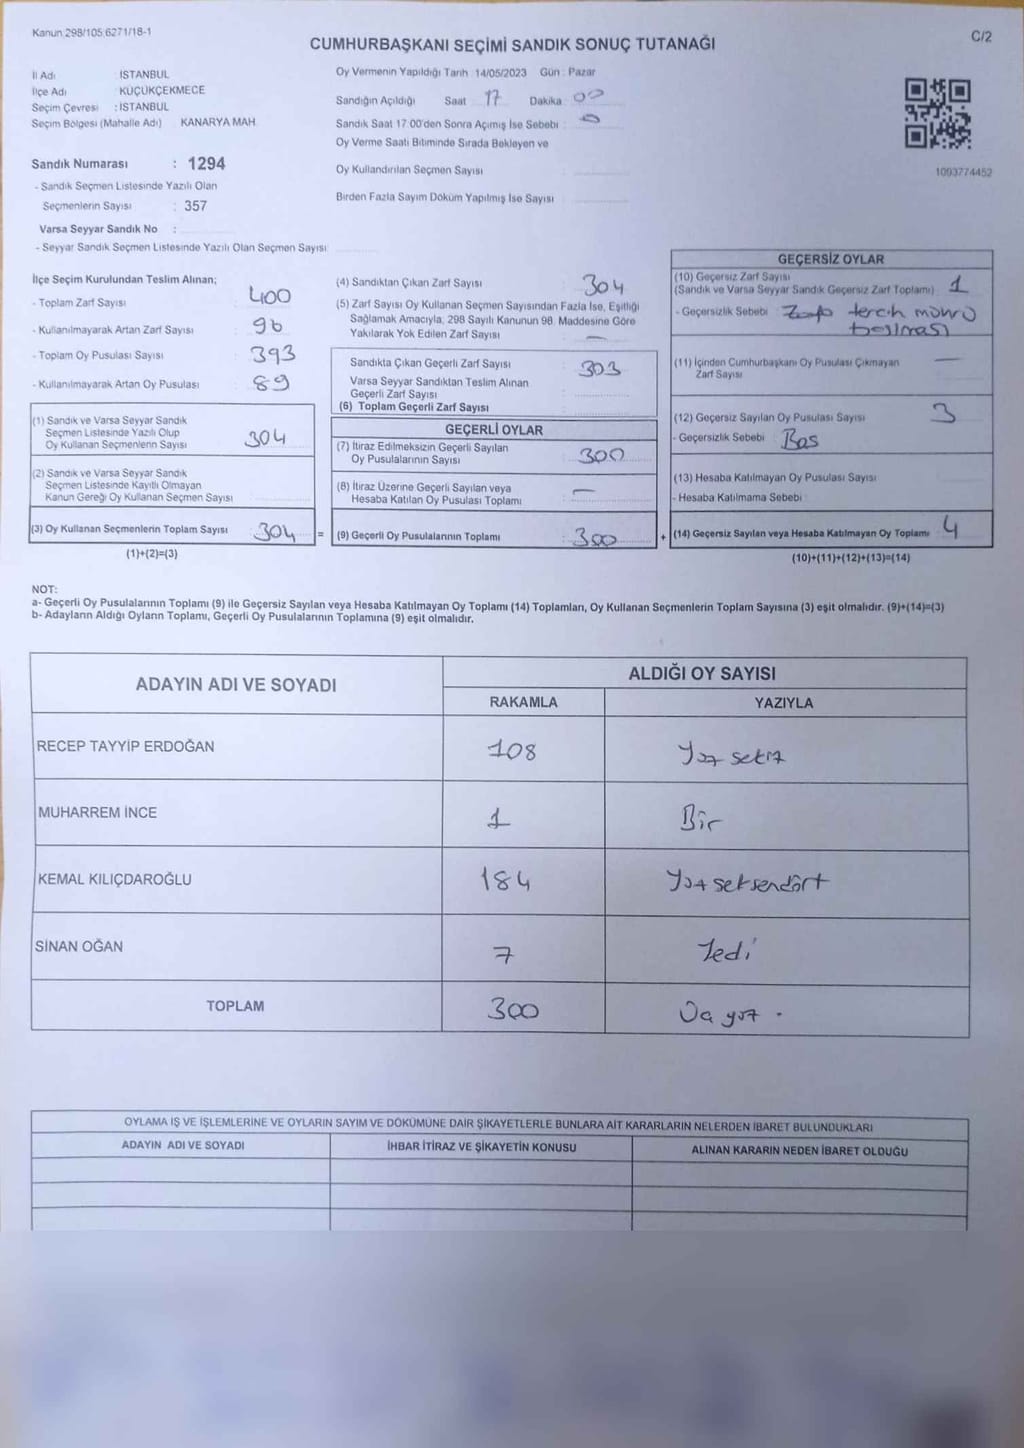 Kanun 298/105,6271/18-1
C/2
CUMHURBAŞKANI SEÇİMİ SANDIK SONUÇ TUTANAĞI
İl Adı : İSTANBUL
İlçe Adı : KÜÇÜKÇEKMECE
Seçim Çevresi : İSTANBUL
Seçim Bölgesi (Mahalle Adı) KANARYA MAH.
Sandık Numarası : 1294
- Sandık Seçmen Listesinde Yazılı Olan
Seçmenlerin Sayısı : 357
Varsa Seyyar Sandık No :
- Seyyar Sandık Seçmen Listesinde Yazılı Olan Seçmen Sayısı:
Oy Vermenin Yapıldığı Tarih : 14/05/2023 Gün : Pazar
Sandığın Açıldığı Saat 17 Dakika 00
Sandık Saat 17:00'den Sonra Açımış İse Sebebi :
Oy Verme Saati Bitiminde Sırada Bekleyen ve
Oy Kullandırılan Seçmen Sayısı :
Birden Fazla Sayım Döküm Yapılmış İse Sayısı :
1093774452
İlçe Seçim Kurulundan Teslim Alınan;
- Toplam Zarf Sayısı : 400
- Kullanılmayarak Artan Zarf Sayısı : 96
- Toplam Oy Pusulası Sayısı : 393
- Kullanılmayarak Artan Oy Pusulası : 89
(1) Sandık ve Varsa Seyyar Sandık
Seçmen Listesinde Yazılı Olup
Oy Kullanan Seçmenlerin Sayısı 304
(2) Sandık ve Varsa Seyyar Sandık
Seçmen Listesinde Kayıtlı Olmayan
Kanun Gereği Oy Kullanan Seçmen Sayısı
(3) Oy Kullanan Seçmenlerin Toplam Sayısı 304 =
(1)+(2)=(3)
(4) Sandıktan Çıkan Zarf Sayısı : 304
(5) Zarf Sayısı Oy Kullanan Seçmen Sayısından Fazla İse, Eşitliği
Sağlamak Amacıyla, 298 Sayılı Kanunun 98. Maddesine Göre
Yakılarak Yok Edilen Zarf Sayısı : —
Sandıkta Çıkan Geçerli Zarf Sayısı : 303
Varsa Seyyar Sandıktan Teslim Alınan
Geçerli Zarf Sayısı :
(6) Toplam Geçerli Zarf Sayısı :
GEÇERLİ OYLAR
(7) İtiraz Edilmeksizin Geçerli Sayılan
Oy Pusulalarının Sayısı : 300
(8) İtiraz Üzerine Geçerli Sayılan veya
Hesaba Katılan Oy Pusulası Toplamı : —
(9) Geçerli Oy Pusulalarının Toplamı : 300 +
GEÇERSİZ OYLAR
(10) Geçersiz Zarf Sayısı
(Sandık ve Varsa Seyyar Sandık Geçersiz Zarf Toplamı) : 1
- Geçersizlik Sebebi : Zarfa tercih mührü
basılması
(11) İçinden Cumhurbaşkanı Oy Pusulası Çıkmayan
Zarf Sayısı : —
(12) Geçersiz Sayılan Oy Pusulası Sayısı : 3
- Geçersizlik Sebebi : Bos
(13) Hesaba Katılmayan Oy Pusulası Sayısı :
- Hesaba Katılmama Sebebi :
(14) Geçersiz Sayılan veya Hesaba Katılmayan Oy Toplamı : 4
(10)+(11)+(12)+(13)=(14)
NOT:
a- Geçerli Oy Pusulalarının Toplamı (9) ile Geçersiz Sayılan veya Hesaba Katılmayan Oy Toplamı (14) Toplamları, Oy Kullanan Seçmenlerin Toplam Sayısına (3) eşit olmalıdır. (9)+(14)=(3)
b- Adayların Aldığı Oyların Toplamı, Geçerli Oy Pusulalarının Toplamına (9) eşit olmalıdır.
ADAYIN ADI VE SOYADI
ALDIĞI OY SAYISI
RAKAMLA YAZIYLA
RECEP TAYYİP ERDOĞAN 108 Yüz sekiz
MUHARREM İNCE 1 Bir
KEMAL KILIÇDAROĞLU 184 Yüz seksendört
SİNAN OĞAN 7 Yedi
TOPLAM 300 Üç yüz .
OYLAMA İŞ VE İŞLEMLERİNE VE OYLARIN SAYIM VE DÖKÜMÜNE DAİR ŞİKAYETLERLE BUNLARA AİT KARARLARIN NELERDEN İBARET BULUNDUKLARI
ADAYIN ADI VE SOYADI İHBAR İTİRAZ VE ŞİKAYETİN KONUSU ALINAN KARARIN NEDEN İBARET OLDUĞU